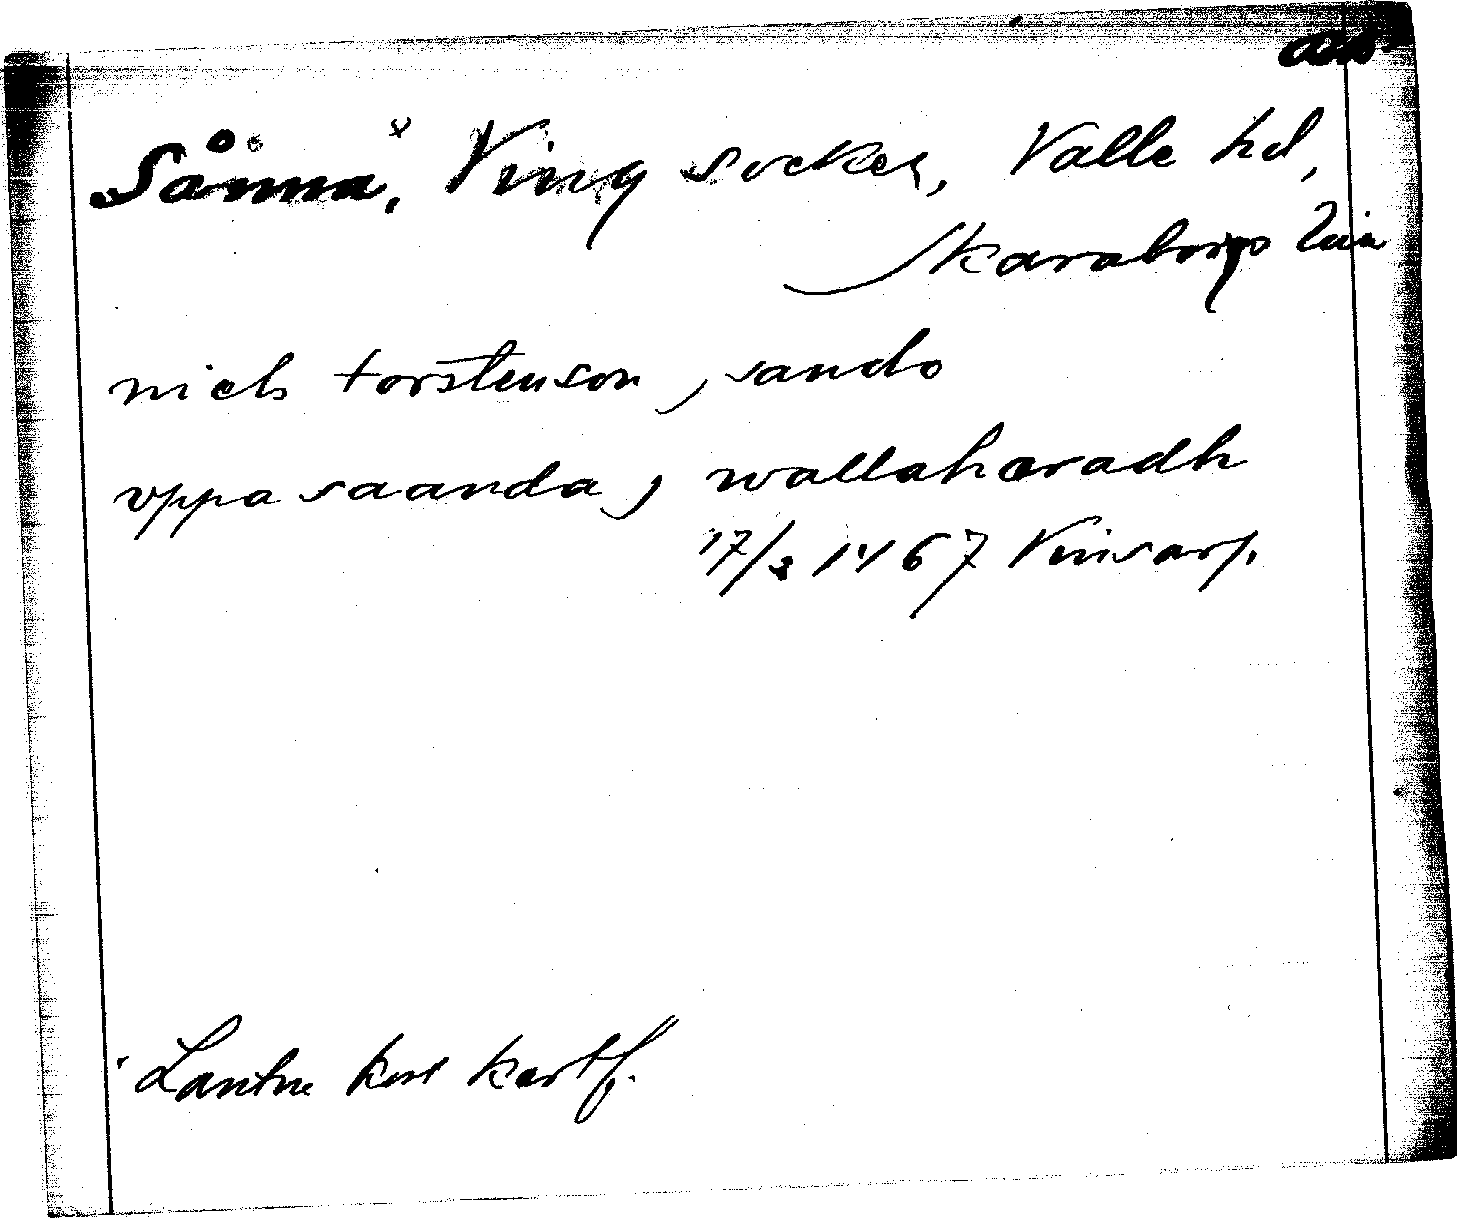 Sånna, Ving socken, Valle hd,
Skaraborgs län
niels torstenson, sando
vppa saanda, wallahæradh
17/3 1467 Vinsarp.
Lantm kont kartf.